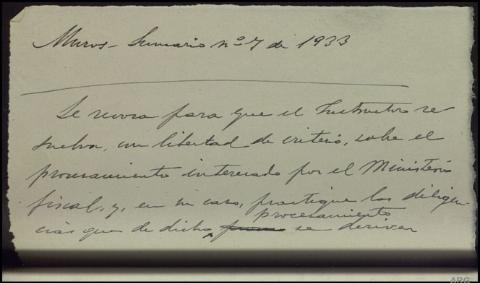 Muros - Sumario nº 7 de 1933
Se revoca para que el Instructor re
suelva, con libertad de criterio, sobre el
procesamiento interesado por el Ministerio
fiscal, y, en su caso, practique las diligen
procesamiento
cias que de dicho se derivan
ARG